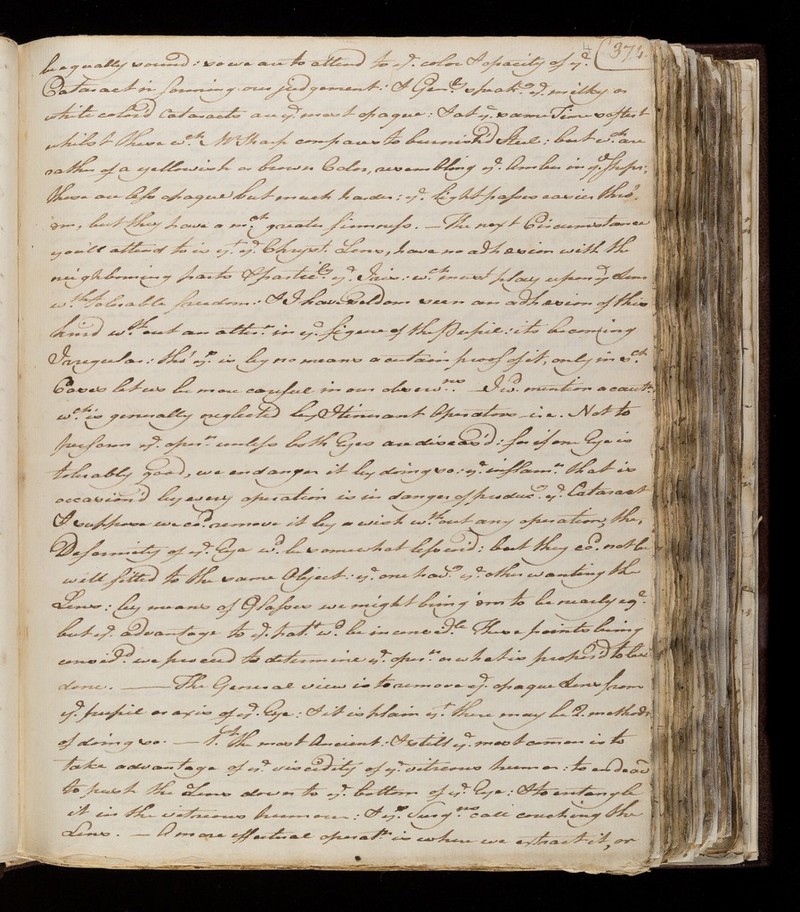 374.
be equally sound: so we are to attend to ye. color & opacity of ye.
Cataract in forming our judgement: & Genlly speakg. ye. milky or
white colord Cataracts are ye. most opaque: & at ye. same Time softest
whilst those wch. Mr. Sharp compares to burnish'd Steel: but wch. are
rather of a yellowish or brown Color, resembling ye. Amber in ye. Shops;
these are less opaque but much harder: ye. Light passes easier thro'
'em, but they have a mch. greater firmness. — The next Circumstance
you'll attend to is yt. ye. Chryst. Lens, have no adhesion with the
neighbouring parts & particly. ye. Iris: wch. must play upon ye. Lens
wth. tolerable freedom: & I have seldom seen an adhesion of this
kind wthout an altern. in ye. figure of the Pupil: its becoming
Irregular: tho' ys. is by no means a certain proof of it, only in sch.
Cases let us be more careful in our observns. I wd. mention a cautn.
wch. is generally neglected by Itinerant Operators i.e. Not to
perform ye. opern. unless both Eyes are diseas'd: for if one Eye is
tolerably good, we endanger it by doing so: ye. inflamn. that is
occasion'd by every operation is in danger of producg. ye. Cataract
I suppose we cd. remove it by a wish wthout any operation, the
Deformity of ye. Eye wd. be somewhat lessen'd: but they cd. not be
well fitted to the same Object: ye. one havg. ye. other wanting the
Lens: by means of Glasses we might bring 'em to be nearly eql.
but ye. advantage to ye. patt. wd. be inconsidle. These points being
considd. we proceed to determine ye. opern. or what is propos'd to be
done. — The General view is to remove ye. opaque Lens from
ye. pupil or axis of ye. Eye: & it is plain yt. there may be 2. methods
of doing so. — 1st. the most Ancient: & still ye. most common is to
take advantage of ye. viscidity of ye. vitreous humor: to endeavr
to push the Lens down to ye. bottom of ye. Eye: & to entangle
it in the vitreous humour: & ys. Surgns. call couching the
Lens. — A more effectual operatn. is when we extract it, or